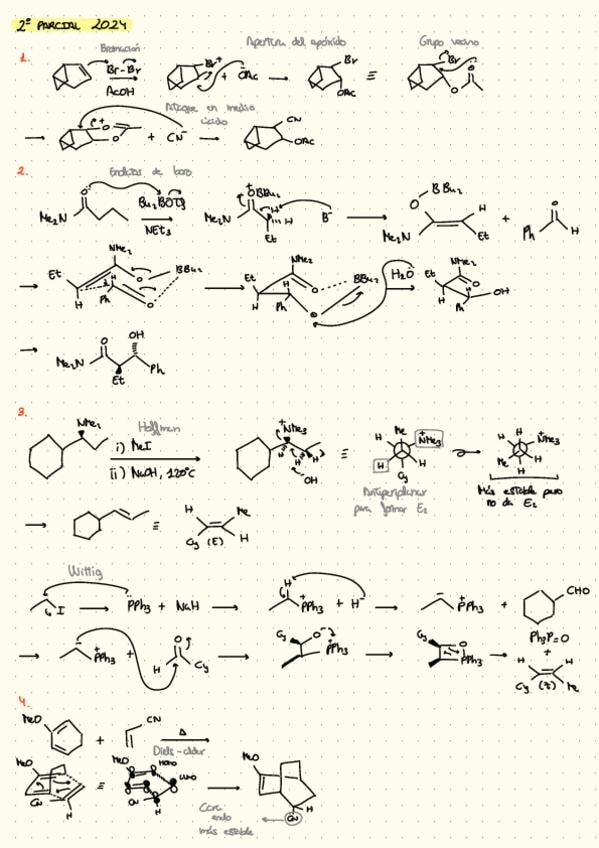 2º PARCIAL 2024
1.
Bromación
Apertura del epóxido
Grupo vecino
Br-Br
AcOH
Br⁺
+ ⁻OAc
Br
OAc
≡
Br
O
O
Ataque en medio
ácido
+
O
O
+ CN⁻
CN
OAc
2.
Enolatos de boro
O
Me₂N
Bu₂BOTf
NEt₃
⁺OBBu₂
Me₂N
H
H
Et
B⁻
BBu₂
O
Me₂N
H
Et
+
O
Ph
H
NMe₂
Et
H
O
BBu₂
H
Ph
O
NMe₂
Et
H
Ph
O
BBu₂
O
H₂O
NMe₂
Et
O
H
Ph
OH
O
OH
Me₂N
Et
Ph
3.
NMe₂
Hoffman
i) MeI
ii) NaOH, 120°C
⁺NMe₃
H
H
⁻OH
≡
Me
H
⁺NMe₃
H
H
Cy
Antiperiplanar
para formar E₂
H
H
⁺NMe₃
Me
H
Cy
Más estable pero
no da E₂
≡
H
Me
Cy
(E)
H
Wittig
I
P̈Ph₃ + NaH
H
⁺PPh₃ + H⁻
⁻
⁺PPh₃
+
CHO
Ph₃P=O
+
⁻
⁺PPh₃
+
O
H
Cy
Cy
O⁻
⁺PPh₃
Cy
O
PPh₃
H
H
Cy
(Z)
Me
4.
MeO
+
CN
Δ
Diels-Alder
MeO
CN
H
≡
MeO
HOMO
LUMO
CN
H
MeO
H
CN
Cara
endo
más estable